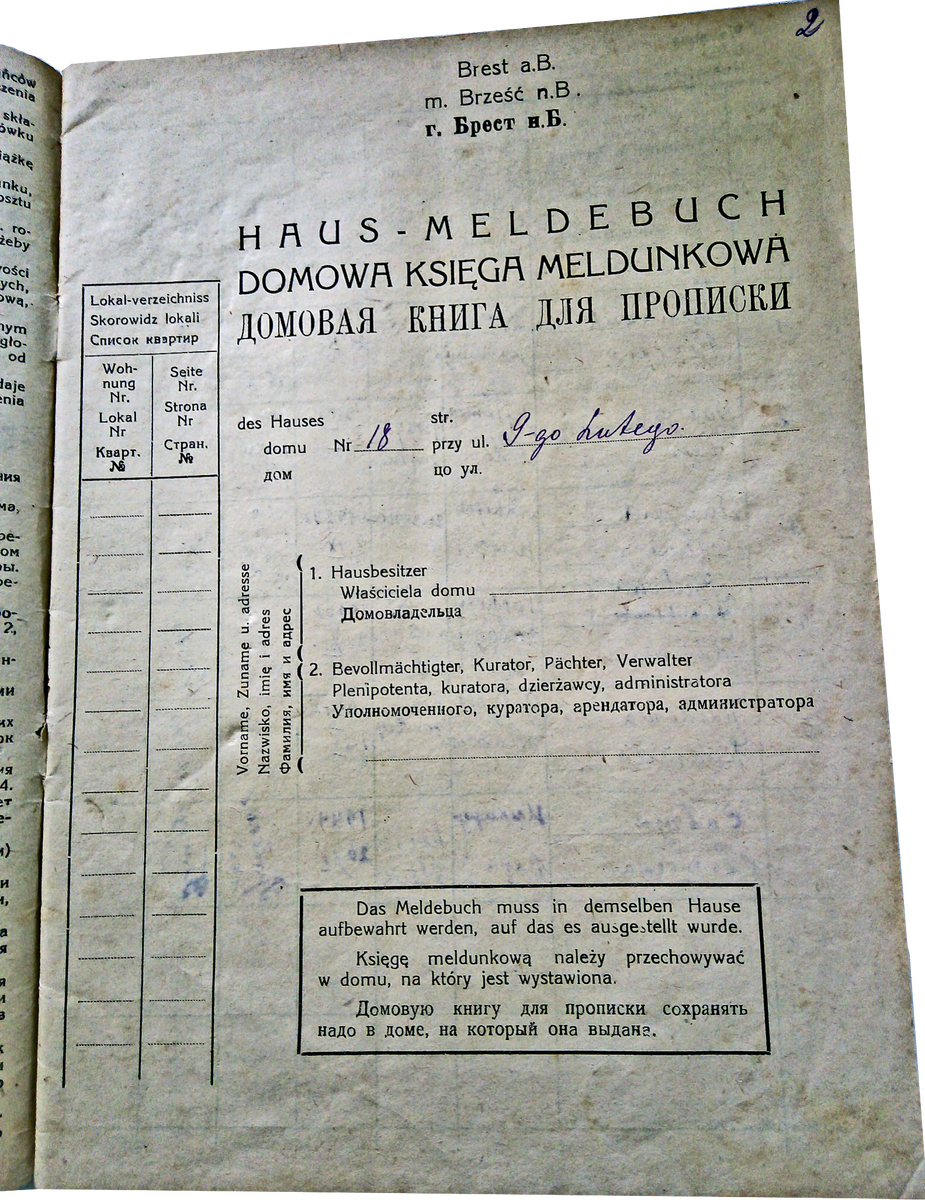 2
Brest a.B.
m. Brześć n.B.
г. Брест н.Б.
HAUS-MELDEBUCH
DOMOWA KSIĘGA MELDUNKOWA
ДОМОВАЯ КНИГА ДЛЯ ПРОПИСКИ
Lokal-verzeichniss
Skorowidz lokali
Список квартир
Woh-
nung
Nr.
Lokal
Nr
Кварт.
№
Seite
Nr.
Strona
Nr
Стран.
№
des Hauses str.
domu Nr 18 przy ul. 9-go Lutego.
дом цо ул.
Vorname, Zuname u. adresse
Nazwisko, imię i adres
Фамилия, имя и адрес
1. Hausbesitzer
Właściciela domu
Домовладельца
2. Bevollmächtigter, Kurator, Pächter, Verwalter
Plenipotenta, kuratora, dzierżawcy, administratora
Уполномоченного, куратора, арендатора, администратора
Das Meldebuch muss in demselben Hause
aufbewahrt werden, auf das es ausgestellt wurde.
Księgę meldunkową należy przechowywać
w domu, na który jest wystawiona.
Домовую книгу для прописки сохранять
надо в доме, на который она выдана.